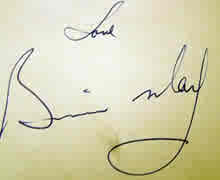 Love
Brian May